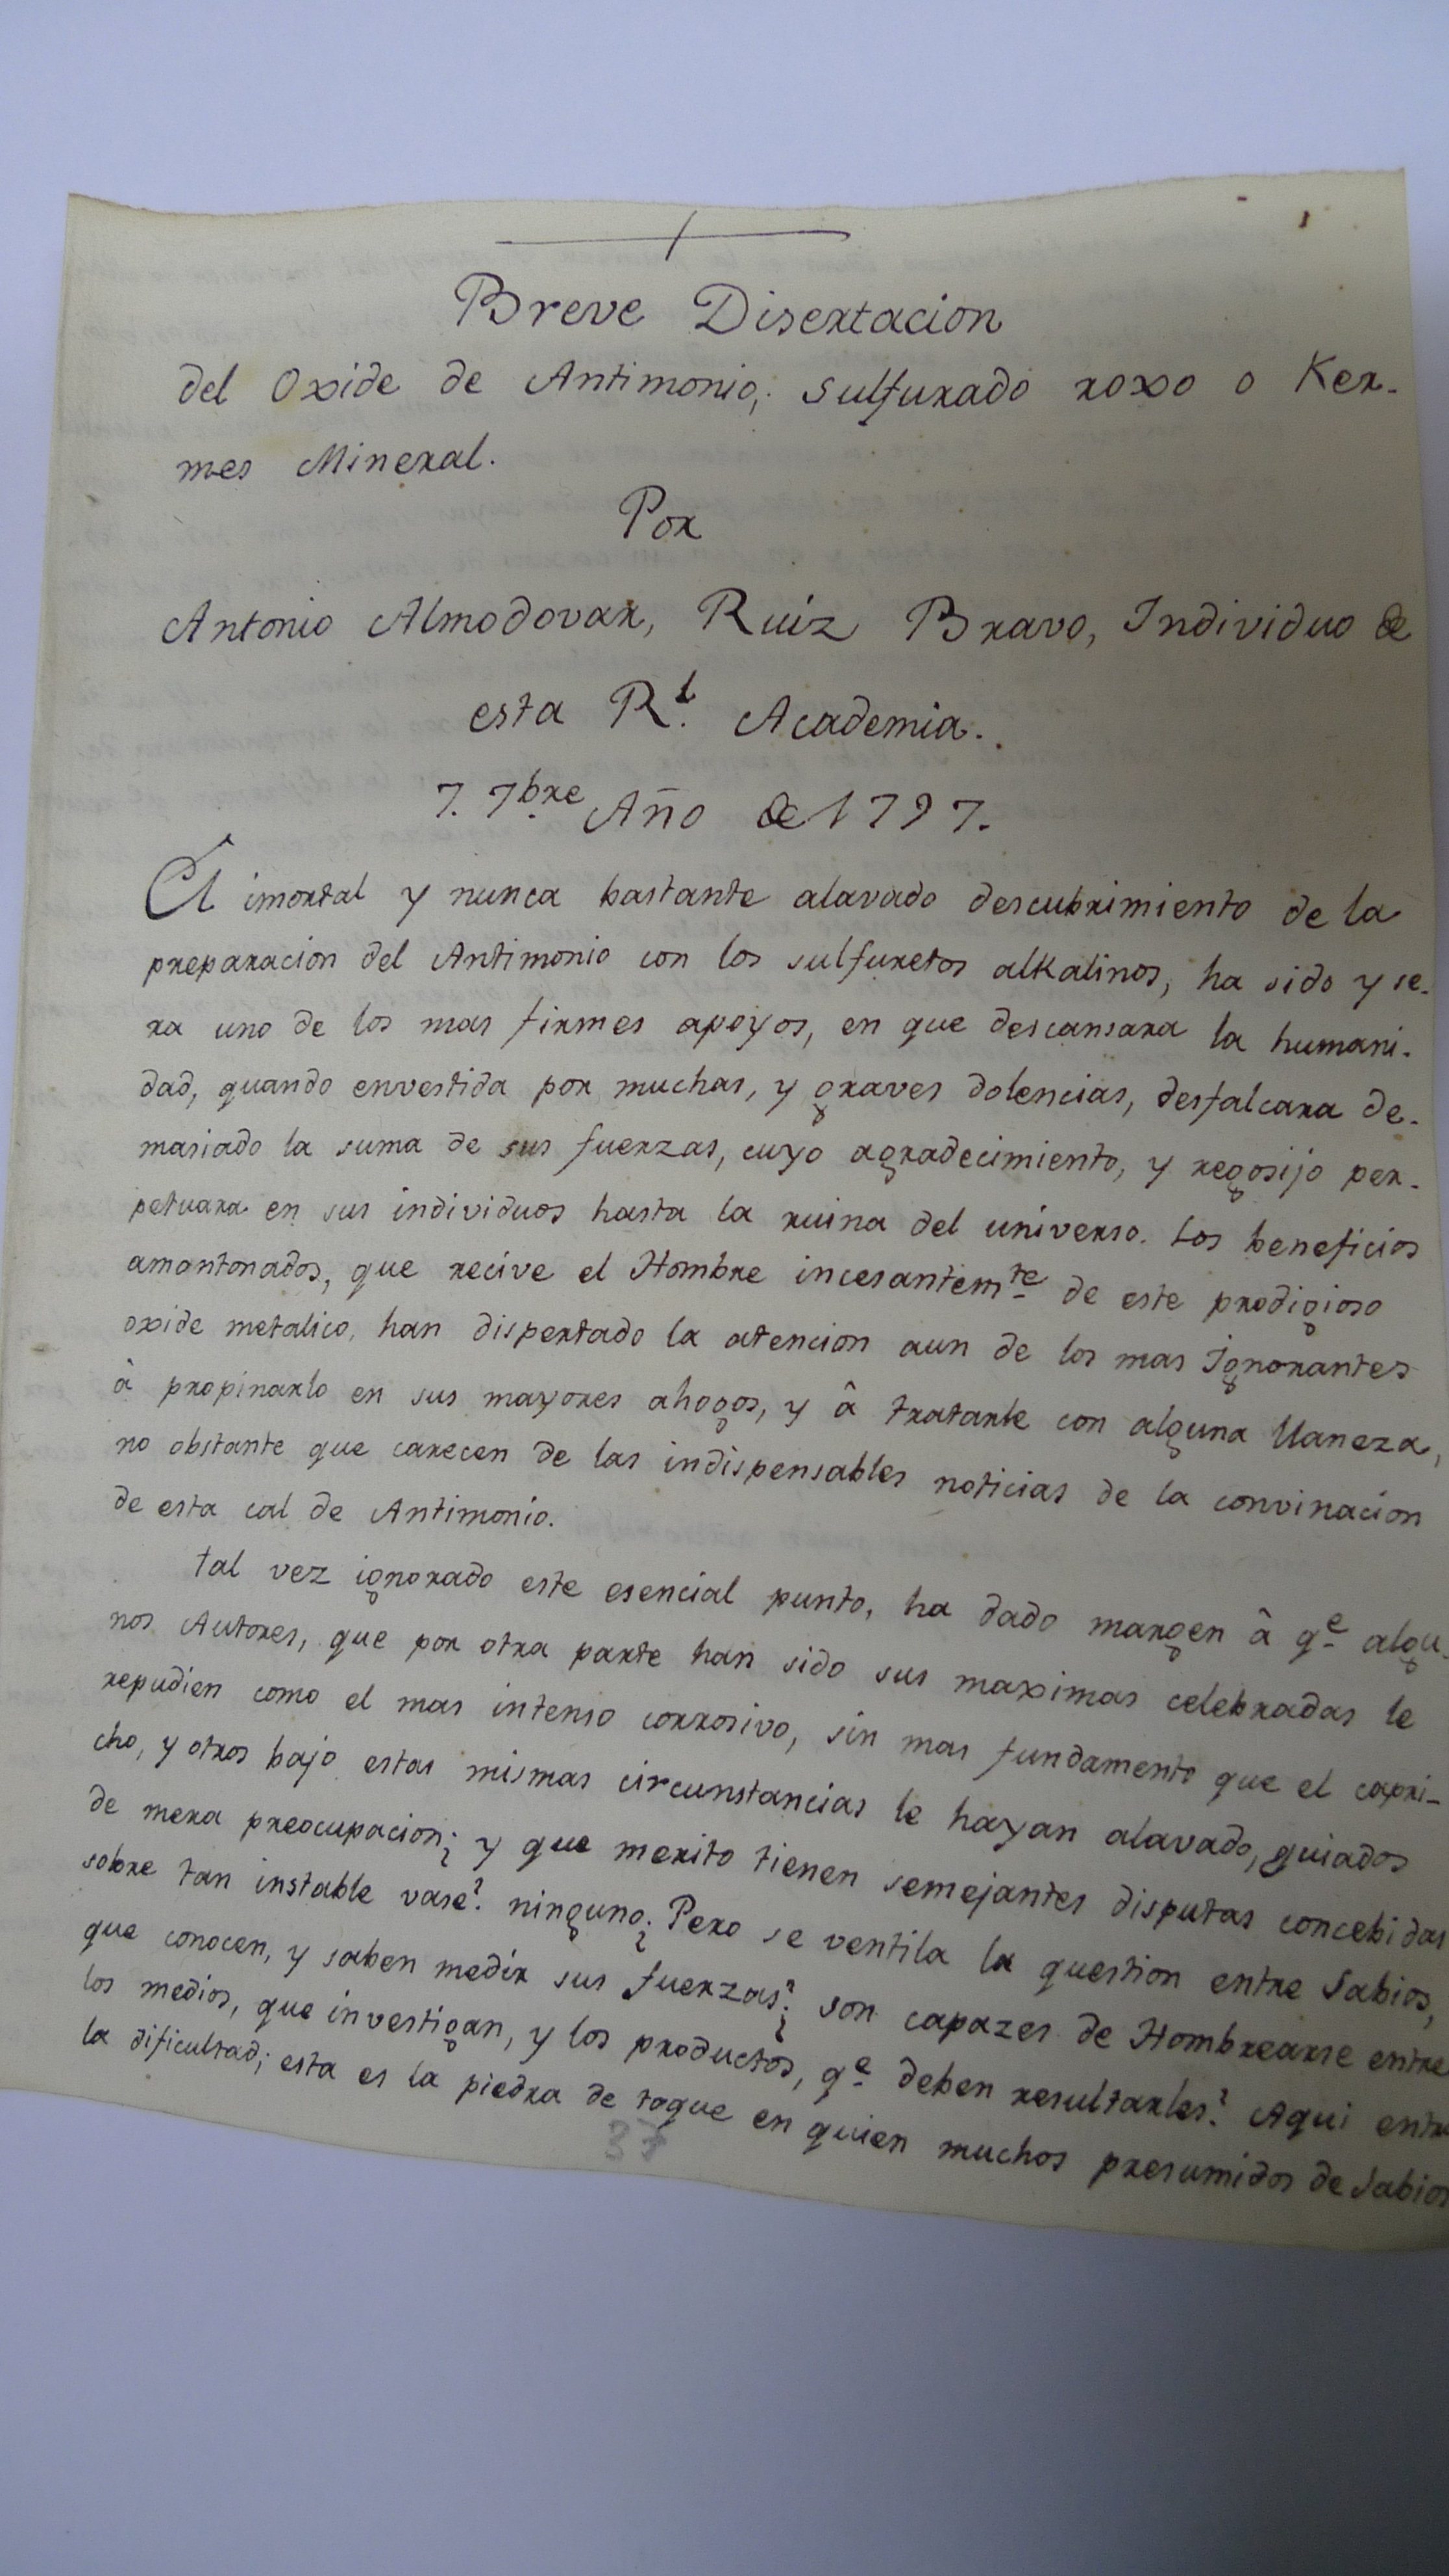 1
Breve Disertacion
del Oxide de Antimonio, sulfurado roxo o Ker-
mes Mineral.
Por
Antonio Almodovar, Ruiz Bravo, Individuo de
esta Rl. Academia.
7. 7bre Año de 1797.
El imortal y nunca bastante alavado descubrimiento de la
preparacion del Antimonio con los sulfuretos alkalinos, ha sido y se-
ra uno de los mas firmes apoyos, en que descansara la humani-
dad, quando envestida por muchas, y graves dolencias, desfalcara de-
masiado la suma de sus fuerzas, cuyo agradecimiento, y regosijo per-
petuara en sus individuos hasta la ruina del universo. Los beneficios
amontonados, que recive el Hombre incesantemte de este prodigioso
oxide metalico, han dispertado la atencion aun de los mas Ignorantes
à propinarlo en sus mayores ahogos, y â tratarle con alguna llaneza,
no obstante que carecen de las indispensables noticias de la convinacion
de esta cal de Antimonio.
Tal vez ignorado este esencial punto, ha dado margen â qe algu-
nos Autores, que por otra parte han sido sus maximas celebradas le
repudien como el mas intenso corrosivo, sin mas fundamento que el capri-
cho, y otros bajo estas mismas circunstancias le hayan alavado, guiados
de mera preocupacion; ¿y que merito tienen semejantes disputas concebidas
sobre tan instable vase? ninguno. ¿Pero se ventila la question entre Sabios,
que conocen, y saben medir sus fuerzas? ¿son capazes de Hombrearse entre
los medios, que investigan, y los productos, qe deben resultarles? Aqui entra
la dificultad; esta es la piedra de toque en quien muchos presumidos de Sabios
37